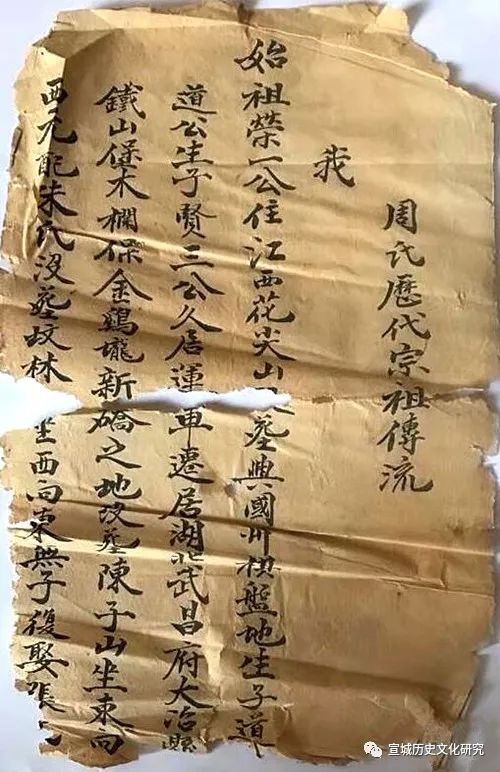 周氏歷代宗祖傳流
我
始祖榮一公住江西花尖山墓興國州橫盤地生子道
道公生子賢三公久居運車遷居湖北武昌府大冶縣
鐵山堡木欄保金鷄壠新礄之地沒墓陳子山坐東向
西元配朱氏沒墓坟林坐西向東無子復娶張
宣城历史文化研究